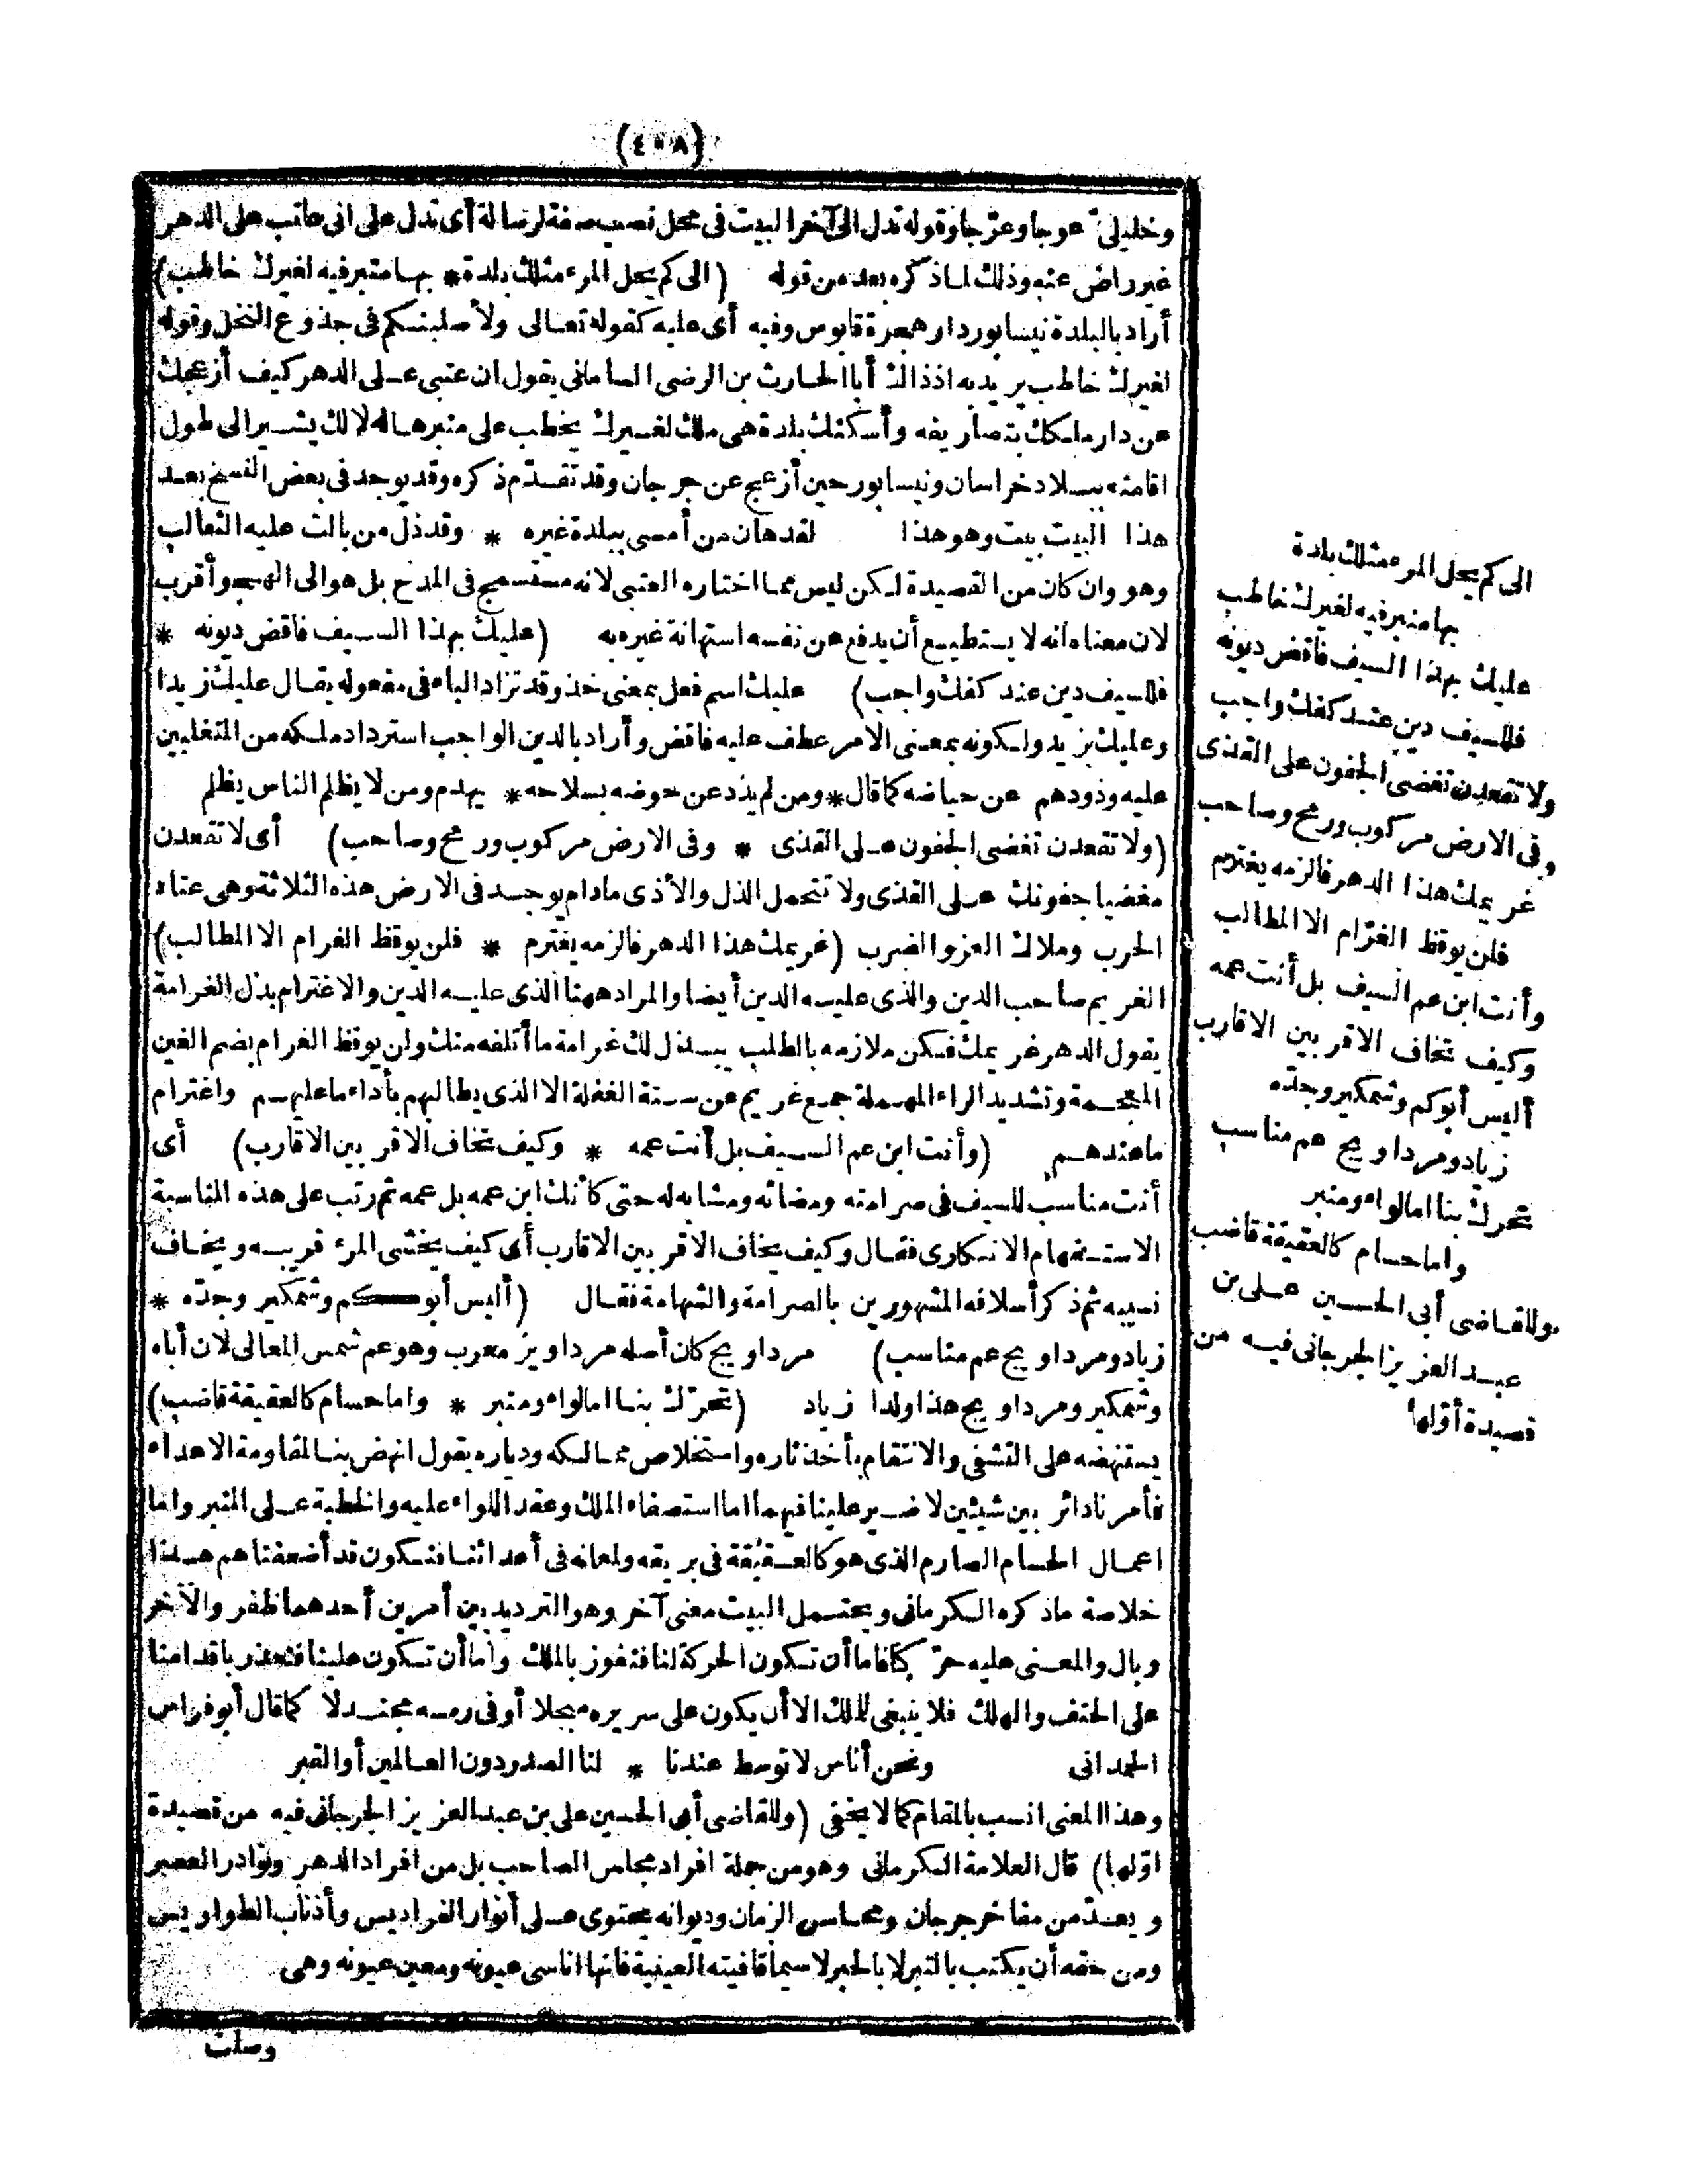 (٤٠٨)
وخليليّ عوجا وعرّجا وقوله تدل الى آخر البيت فى محل نصب صفة لرسالة أى تدل على انى عاتب على الدهر
غير راض عنه وذلك لما ذكره بعد من قوله (الى كم يحل المرء مثلك بلدة * بها منبر فيه لغيرك خاطب)
أراد بالبلدة نيسابور دار هجرة قابوس وفيه أى عليه كقوله تعالى ولأصلبنكم فى جذوع النخل وقوله
لغيرك خاطب يريد به اذ ذاك أبا الحارث بن الرضى السامانى يقول ان عتبى على الدهر كيف أزعجك
عن دار ملكك بتصاريفه وأسكنك بلدة هى ملك لغيرك يخطب على منبرها له لا لك يشير الى طول
اقامته ببلاد خراسان ونيسابور حين أزعج عن جرجان وقد تقدّم ذكره وقد يوجد فى بعض النسخ بعد
هذا البيت بيت وهو هذا لقد هان من أمسى ببلدة غيره * وقد ذل من بالت عليه الثعالب
وهو وان كان من القصيدة لكن ليس مما اختاره العتبى لانه مستسمج فى المدح بل هو الى الهجو أقرب
لان معناه انه لا يستطيع أن يدفع عن نفسه استهانة غيره به (عليك بهذا السيف فاقض ديونه *
فللسيف دين عند كفك واجب) عليك اسم فعل بمعنى خذ وقد تزاد الباء فى مفعوله يقال عليك زيدا
وعليك بزيد ولكونه بمعنى الامر عطف عليه فاقض وأراد بالدين الواجب استرداد ملكه من المتغلبين
عليه وذودهم عن حياضه كما قال * ومن لم يذد عن حوضه بسلاحه * يهدم ومن لا يظلم الناس يظلم
(ولا تقعدن تغضى الجفون على القذى * وفى الارض مركوب ورمح وصاحب) أى لا تقعدن
مغضيا جفونك على القذى ولا تتحمل الذل والأذى ما دام يوجد فى الارض هذه الثلاثة وهى عتاد
الحرب وملاك العز والضرب (غريمك هذا الدهر فالزمه يغترم * فلن يوقظ الغرام الا المطالب)
الغريم صاحب الدين والذى عليه الدين أيضا والمراد ههنا الذى عليه الدين والاغترام بذل الغرامة
يقول الدهر غريمك فكن ملازمه بالطلب يبذل لك غرامة ما أتلفه منك ولن يوقظ الغرام بضم الغين
المعجمة وتشديد الراء المهملة جمع غريم عن سنة الغفلة الا الذى يطالبهم بأداء ما عليهم واغترام
ما عندهم (وأنت ابن عم السيف بل أنت عمه * وكيف تخاف الاقربين الاقارب) أى
أنت مناسب للسيف فى صرامته ومضائه ومشابه له حتى كأنك ابن عمه بل عمه ثم رتب على هذه المناسبة
الاستفهام الانكارى فقال وكيف يخاف الاقربين الاقارب أى كيف يخشى المرء قريبه ويخاف
نسيبه ثم ذكر أسلافه المشهورين بالصرامة والشهامة فقال (أليس أبوكم وشمكير وجدّه *
زياد ومرداويج عم مناسب) مرداويج كان أصله مرداويز معرب وهو عم شمس المعالى لان أباه
وشمكير ومرداويج هذا ولدا زياد (تحرّك بنا اما لواء ومنبر * واما حسام كالعقيقة قاضب)
يستنهضه على التشفى والانتقام بأخذ ثاره واستخلاص ممالكه ودياره يقول انهض بنا لمقاومة الاعداء
فأمرنا دائر بين شيئين لا ضير علينا فيهما اما استصفاء الملك وعقد اللواء عليه والخطبة على المنبر واما
اعمال الحسام الصارم الذى هو كالعقيقة فى بريقه ولمعانه فى أعدائنا فنكون قد أضعفناهم هذا
خلاصة ما ذكره الكرمانى ويحتمل البيت معنى آخر وهو الترديد بين أمرين أحدهما ظفر والآخر
وبال والمعنى عليه حرّكنا فاما أن تكون الحركة لنا فنفوز بالملك واما أن تكون علينا فنعذر باقدامنا
على الحتف والهلك فلا ينبغى للملك الا أن يكون على سريره مبجلا أو فى رمسه مجندلا كما قال أبو فراس
الحمدانى ونحن أناس لا توسط عندنا * لنا الصدر دون العالمين أو القبر
وهذا المعنى انسب بالمقام كما لا يخفى (وللقاضى أبى الحسين على بن عبد العزيز الجرجانى فيه من قصيدة
اوّلها) قال العلامة الكرمانى وهو من جملة افراد مجلس الصاحب بل من افراد الدهر ونوادر العصر
ويعدّ من مفاخر جرجان ومحاسن الزمان وديوانه يحتوى على أنوار الفراديس وأذناب الطواويس
ومن حقه أن يكتب بالتبر لا بالحبر لا سيما قافيته العينية فانها اناسى عيونه ومعين عيونه وهى
وصلت
الى كم يحل المرء مثلك بلدة
بها منبر فيه لغيرك خاطب
عليك بهذا السيف فاقض ديونه
فللسيف دين عند كفك واجب
ولا تقعدن تغضى الجفون على القذى
وفى الارض مركوب ورمح وصاحب
غريمك هذا الدهر فالزمه يغترم
فلن يوقظ الغرّام الا المطالب
وأنت ابن عم السيف بل أنت عمه
وكيف تخاف الاقربين الاقارب
أليس أبوكم وشمكير وجدّه
زياد ومرداويج عم مناسب
تحرك بنا اما لواء ومنبر
واما حسام كالعقيقة قاضب
وللقاضى أبى الحسين على بن
عبد العزيز الجرجانى فيه من
قصيدة أوّلها